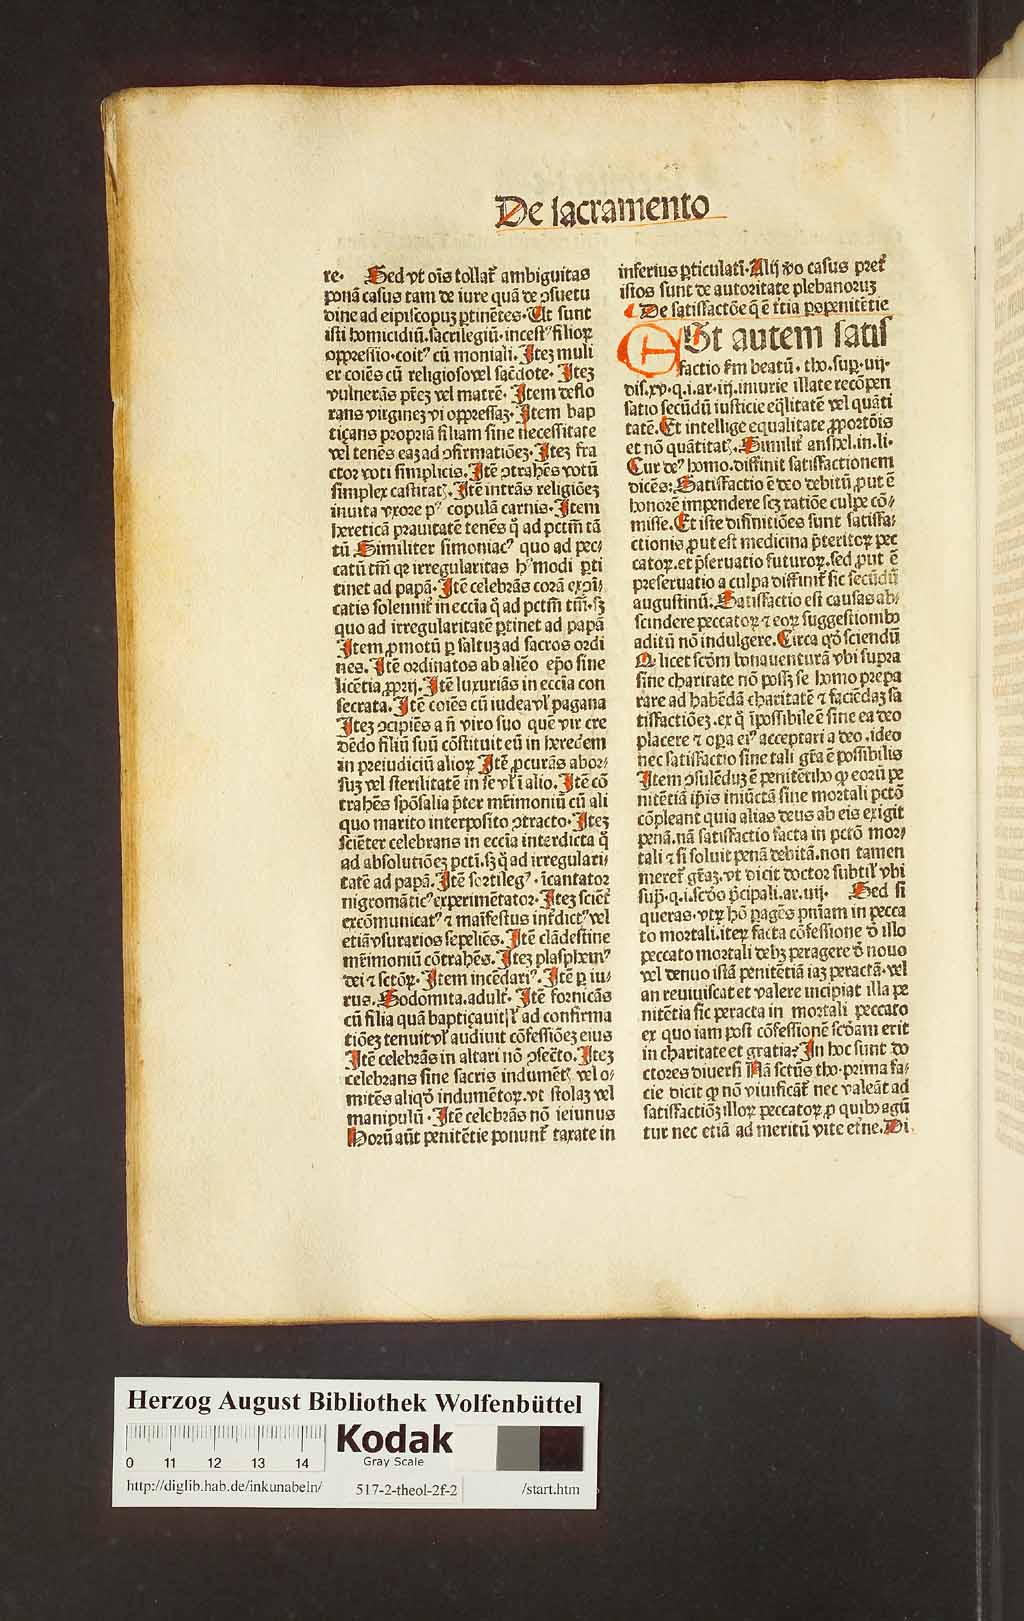 De sacramento
re. Sed vt oīs tollat᷑ ambiguitas
ponā casus tam de iure quā de ꝯsuetu
dine ad eṗiscopuꝫ ꝑtinētes. Ut sunt
isti homicidiū. sacrilegiū. incestꝰ filioꝝ
oppressio. coitꝰ cū moniali. Iteꝫ muli
er coiēs cū religioso vel sac̄dote. Iteꝫ
vulnerās pr̄eꝫ vel matrē. Item deflo
rans virgineꝫ vi oppressaꝫ. Item bap
tiçans propriā filiam sine necessitate
vel tenēs eaꝫ ad ꝯfirmatiōeꝫ. Iteꝫ fra
ctor voti simplicis. Itē ꝯtrahēs votū
simplex castitatꝭ. Itē intrās religiōeꝫ
inuita vxore pꝰ copulā carnis. Item
hereticā prauitatē tenēs ꝙ ad pctm̄ tā
tū Similiter simoniacꝰ quo ad pec/
catū tm̄ qꝛ irregularitas hꝰmodi ꝑti
tinet ad papā. Itē celebrās corā exōi/
catis solennit᷑ in eccīa ꝙ ad pctm̄ tm̄. sꝫ
quo ad irregularitatē ꝑtinet ad papā
Item ꝓmotū ꝑ saltuꝫ ad sacros ordi
nes. Itē ordinatos ab aliēo ep̄o sine
licētia ꝓprij. Itē luxuriās in eccīa con
secrata. Itē coiēs cū iudea vl̓ pagana
Iteꝫ ꝯcipiēs a ñ viro suo quē vir cre
dēdo filiū suū cōstituit eū in heredem
in preiudiciū alioꝝ Itē ꝓcurās abor/
suꝫ vel sterilitatē in se vl̓ ī alio. Itē cō
trahēs spōsalia p̄ter mr̄imoniū cū ali
quo marito interposito ꝯtracto. Iteꝫ
sciēter celebrans in eccīa interdicta ꝙ
ad absolutiōeꝫ pctī. sꝫ ꝙ ad irregulari/
tatē ad papā. Itē sortilegꝰ. īcantator
nigromāticꝰ experimētator. Iteꝫ scient᷑
excōmunicatꝰ ⁊ māifestus int᷑dictꝰ vel
etiā vsurarios sepeliēs. Itē clādestine
mr̄imoniū cōtrahēs. Iteꝫ plasphemꝰ
dei ⁊ sctōꝝ. Item incēdariꝰ. Itē ꝑ iu/
rus. Sodomita. adult᷑. Itē fornicās
cū filia quā baptiçauit vl̓ ad confirma
tiōeꝫ tenuit vl̓ audiuit cōfessiōeꝫ eius
Itē celebrās in altari nō ꝯsec̄to. Iteꝫ
celebrans sine sacris indumētꝭ vel o/
mitēs aliqḋ indumētoꝝ. vt stolaꝫ vel
manipulū. Itē celebrās nō ieiunus
Horū aūt penitētie ponunt᷑ taxate in
inferius ꝑticulatī. Alij v̊o casus pret᷑
istos sunt de autoritate plebanoruꝫ
De satisfactōe q̄ ē t᷑tia ps penitētie
St autem satis
factio ẜm beatū. tho. suꝑ. iiij.
dis. xv. q. i. ar. iij. iniurie illate recōpen
satio secūdū iusticie eq̄litatē vel quāti
tatē. Et intellige equalitatē ꝓportōis
et nō quātitatꝭ. Similit᷑ anshel. in. li.
Cur deꝰ homo. diffinit satisfactionem
dicēs: Satisfactio ē deo debitū ꝓut ē
honorē impendere scꝫ ratiōe culpe cō/
misse. Et iste difinitiōes sunt satisfa/
ctionis ꝓut est medicina p̄teritoꝝ pec
catoꝝ. et p̄seruatio futuroꝝ. sed ꝓut ē
preseruatio a culpa diffinit᷑ sic secūdū
augustinū. Satisfactio est causas ab/
scindere peccatoꝝ ⁊ eoꝝ suggestionibꝰ
aditū nō indulgere. Circa qḋ sciendū
Q licet scḋm bonauenturā vbi supra
sine charitate nō possꝫ se homo prepa
rare ad habēdā charitatē ⁊ faciēdaꝫ sa
tisfactiōeꝫ. ex ꝙ īpossibile ē sine ea deo
placere ⁊ oꝑa eiꝰ acceptari a deo. ideo
nec satisfactio sine tali gr̄a ē possibilis
Item ꝯsulēduꝫ ē penitētibꝰ ꝙ eorū pe
nitētiā ip̄is iniūctā sine mortali pctō
cōpleant quia alias deus ab eis exigit
penā. nā satisfactio facta in pctō mor/
tali ⁊ si soluit penā debitā. non tamen
meret᷑ gr̄aꝫ. vt dicit doctor subtil̓ vbi
supͣ. q. i. scḋo p̄cipali. ar. iij. Sed si
queras. vtꝝ hō pagēs pnīam in pecca
to mortali. iteꝝ facta cōfessione ḋ illo
peccato mortali debꝫ peragere ḋ nouo
vel denuo istā penitētiā iaꝫ peractā. vel
an reuiuiscat et valere incipiat illa pe
nitētia sic peracta in mortali peccato
ex quo iam post cōfessionē scḋam erit
in charitate et gratia? In hoc sunt do
ctores diuersi Nā sctūs tho. prima fa/
cie dicit ꝙ nō viuificāt᷑ nec valeāt ad
satisfactiōꝫ illoꝝ peccatoꝝ ꝓ quibꝰ agū
tur nec etiā ad meritū vite et᷑ne. Di
Herzog August Bibliothek Wolfenbüttel
0 11 12 13 14
Kodak
Gray Scale
http://diglib.hab.de/inkunabeln/ 517-2-theol-2f-2 /start.htm